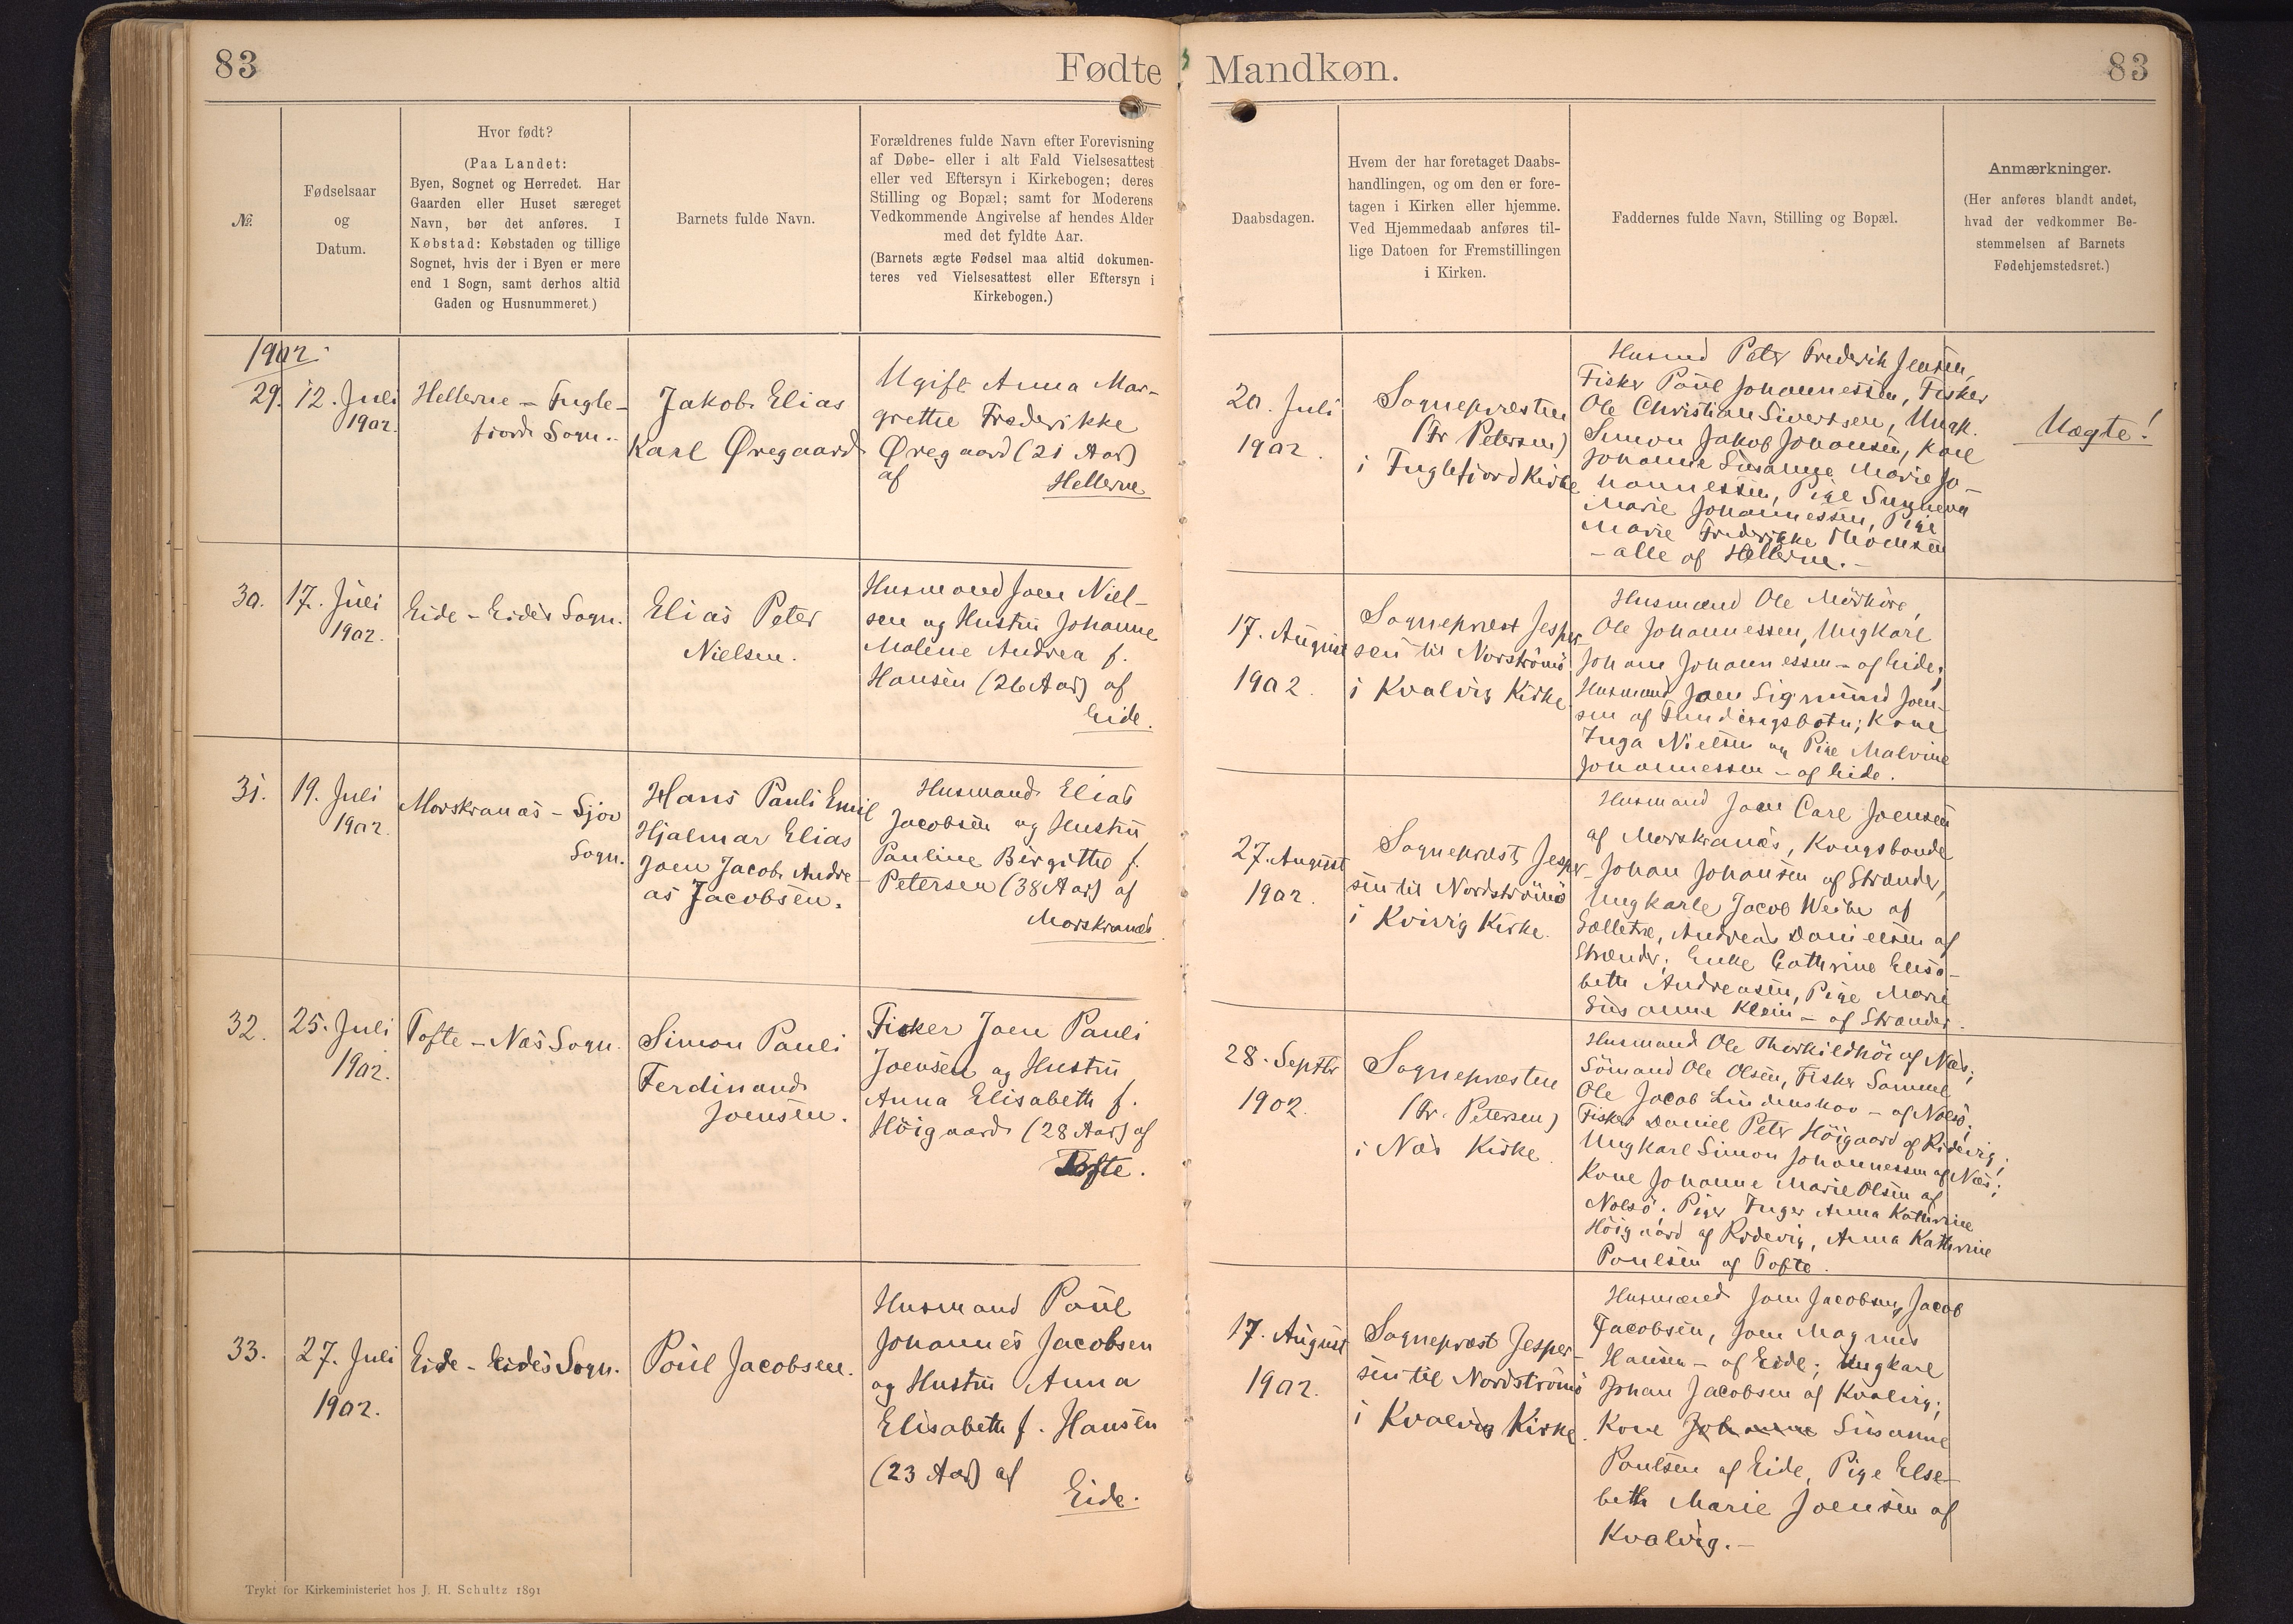 83
Fødte
Mandkøn.
83
№.
Fødselsaar
og
Datum.
Hvor født?
(Paa Landet:
Byen, Sognet og Herredet. Har
Gaarden eller Huset særeget
Navn, bør det anføres. I
Købstad: Købstaden og tillige
Sognet, hvis der i Byen er mere
end 1 Sogn, samt derhos altid
Gaden og Husnummeret.)
Barnets fulde Navn.
Forældrenes fulde Navn efter Forevisning
af Døbe- eller i alt Fald Vielsesattest
eller ved Eftersyn i Kirkebogen; deres
Stilling og Bopæl; samt for Moderens
Vedkommende Angivelse af hendes Alder
med det fyldte Aar.
(Barnets ægte Fødsel maa altid dokumen-
teres ved Vielsesattest eller Eftersyn i
Kirkebogen.)
Daabsdagen.
Hvem der har foretaget Daabs-
handlingen, og om den er fore-
tagen i Kirken eller hjemme.
Ved Hjemmedaab anføres til-
lige Datoen for Fremstillingen
i Kirken.
Faddernes fulde Navn, Stilling og Bopæl.
Anmærkninger.
(Her anføres blandt andet,
hvad der vedkommer Be-
stemmelsen af Barnets
Fødehjemstedsret.)
1902.
29.
12. Juli
1902.
Hellerne - Fugle-
fjord Sogn.
Jakob Elias
Karl Øregaard
Ugift Anna Mar-
grethe Frederikke
Øregaard (21 Aar)
af
Hellerne
20. Juli
1902.
Sognepræsten
(Fr Petersen)
i Fuglefjord Kirke
Husmd Peter Frederik Jensen,
Fisker Poul Johannessen, Fisker
Ole Christian Sivertsen, Ungk.
Simon Jakob Johansen, Kone
Johanne Susanne Marie Jo-
hannessen, Pige Sunneva
Marie Johannessen, Pige
Marie Frederikke Thomsen
- alle af Hellerne. -
Uægte!
30.
17. Juli
1902.
Eide - Eides Sogn.
Elias Peter
Nielsen.
Husmand Joen Niel-
sen og Hustru Johanne
Malene Andrea f.
Hansen (26 Aar) af
Eide.
17. August
1902.
Sognepræst Jesper
sen til Norströmö
i Kvalvig Kirke.
Husmænd Ole Mörköre,
Ole Johannessen, Ungkarl
Johane Johannessen - af Eide;
Husmand Joen Sigmund Joen-
sen af Fundingsbotn; Kone
Inga Nielsen og Pige Malvine
Johannessen - af Eide.
31.
19. Juli
1902
Morskranæs - Sjov
Sogn.
Hans Pauli Emil
Hjalmar Elias
Joen Jacob Andre-
as Jacobsen.
Husmand Elias
Jacobsen og Hustru
Pauline Birgithe f.
Petersen (38 Aar) af
Morskranæs.
27. August
1902.
Sognepræst Jesper-
sen til Nordströmö
i Kvivig Kirke.
Husmand Joen Carl Joensen
af Morskranæs, Kongsbonde
Johan Johansen af Strænder,
Ungkarle Jacob Weihe af
Sælletræ, Andreas Danielsen af
Strænder; Enke Cathrine Elisa-
beth Andreasen, Pige Marie
Susanne Klein - af Strænder.
32.
25. Juli
1902.
Tofte - Næs Sogn.
Simon Pauli
Ferdinand
Joensen.
Fisker Joen Pauli
Joensen og Hustru
Anna Elisabeth f.
Höigaard (28 Aar) af
Tofte.
28. Septbr
1902.
Sognepræsten
(Fr. Petersen)
i Næs Kirke.
Husmand Ole Thorkildhöi af Næs;
Sömand Ole Olsen, Fisker Samuel
Ole Jacob Lindenskov - af Nolsö;
Fisker Daniel Peter Höigaard af Ridevig;
Ungkarl Simon Johannessen af Næs;
Kone Johanne Marie Olsen af
Nolsö; Piger Inger Anna Kathrine
Höigaard af Ridevig, Anna Kathrine
Poulsen af Tofte.
33.
27. Juli
1902.
Eide - Eides Sogn.
Poul Jacobsen.
Husmand Poul
Johannes Jacobsen
og Hustru Anna
Elisabeth f. Hansen
(23 Aar) af
Eide.
17. August
1902.
Sognepræst Jesper-
sen til Nordströmö
i Kvalvig Kirke.
Husmænd Joen Jacobsen, Jacob
Jacobsen, Joen Magnus
Hansen - af Eide; Ungkarl
Johan Jacobsen af Kvalvig;
Kone Johanne Susanne
Poulsen af Eide, Pige Else-
beth Marie Joensen af
Kvalvig. -
Trykt for Kirkeministeriet hos J. H. Schultz 1891